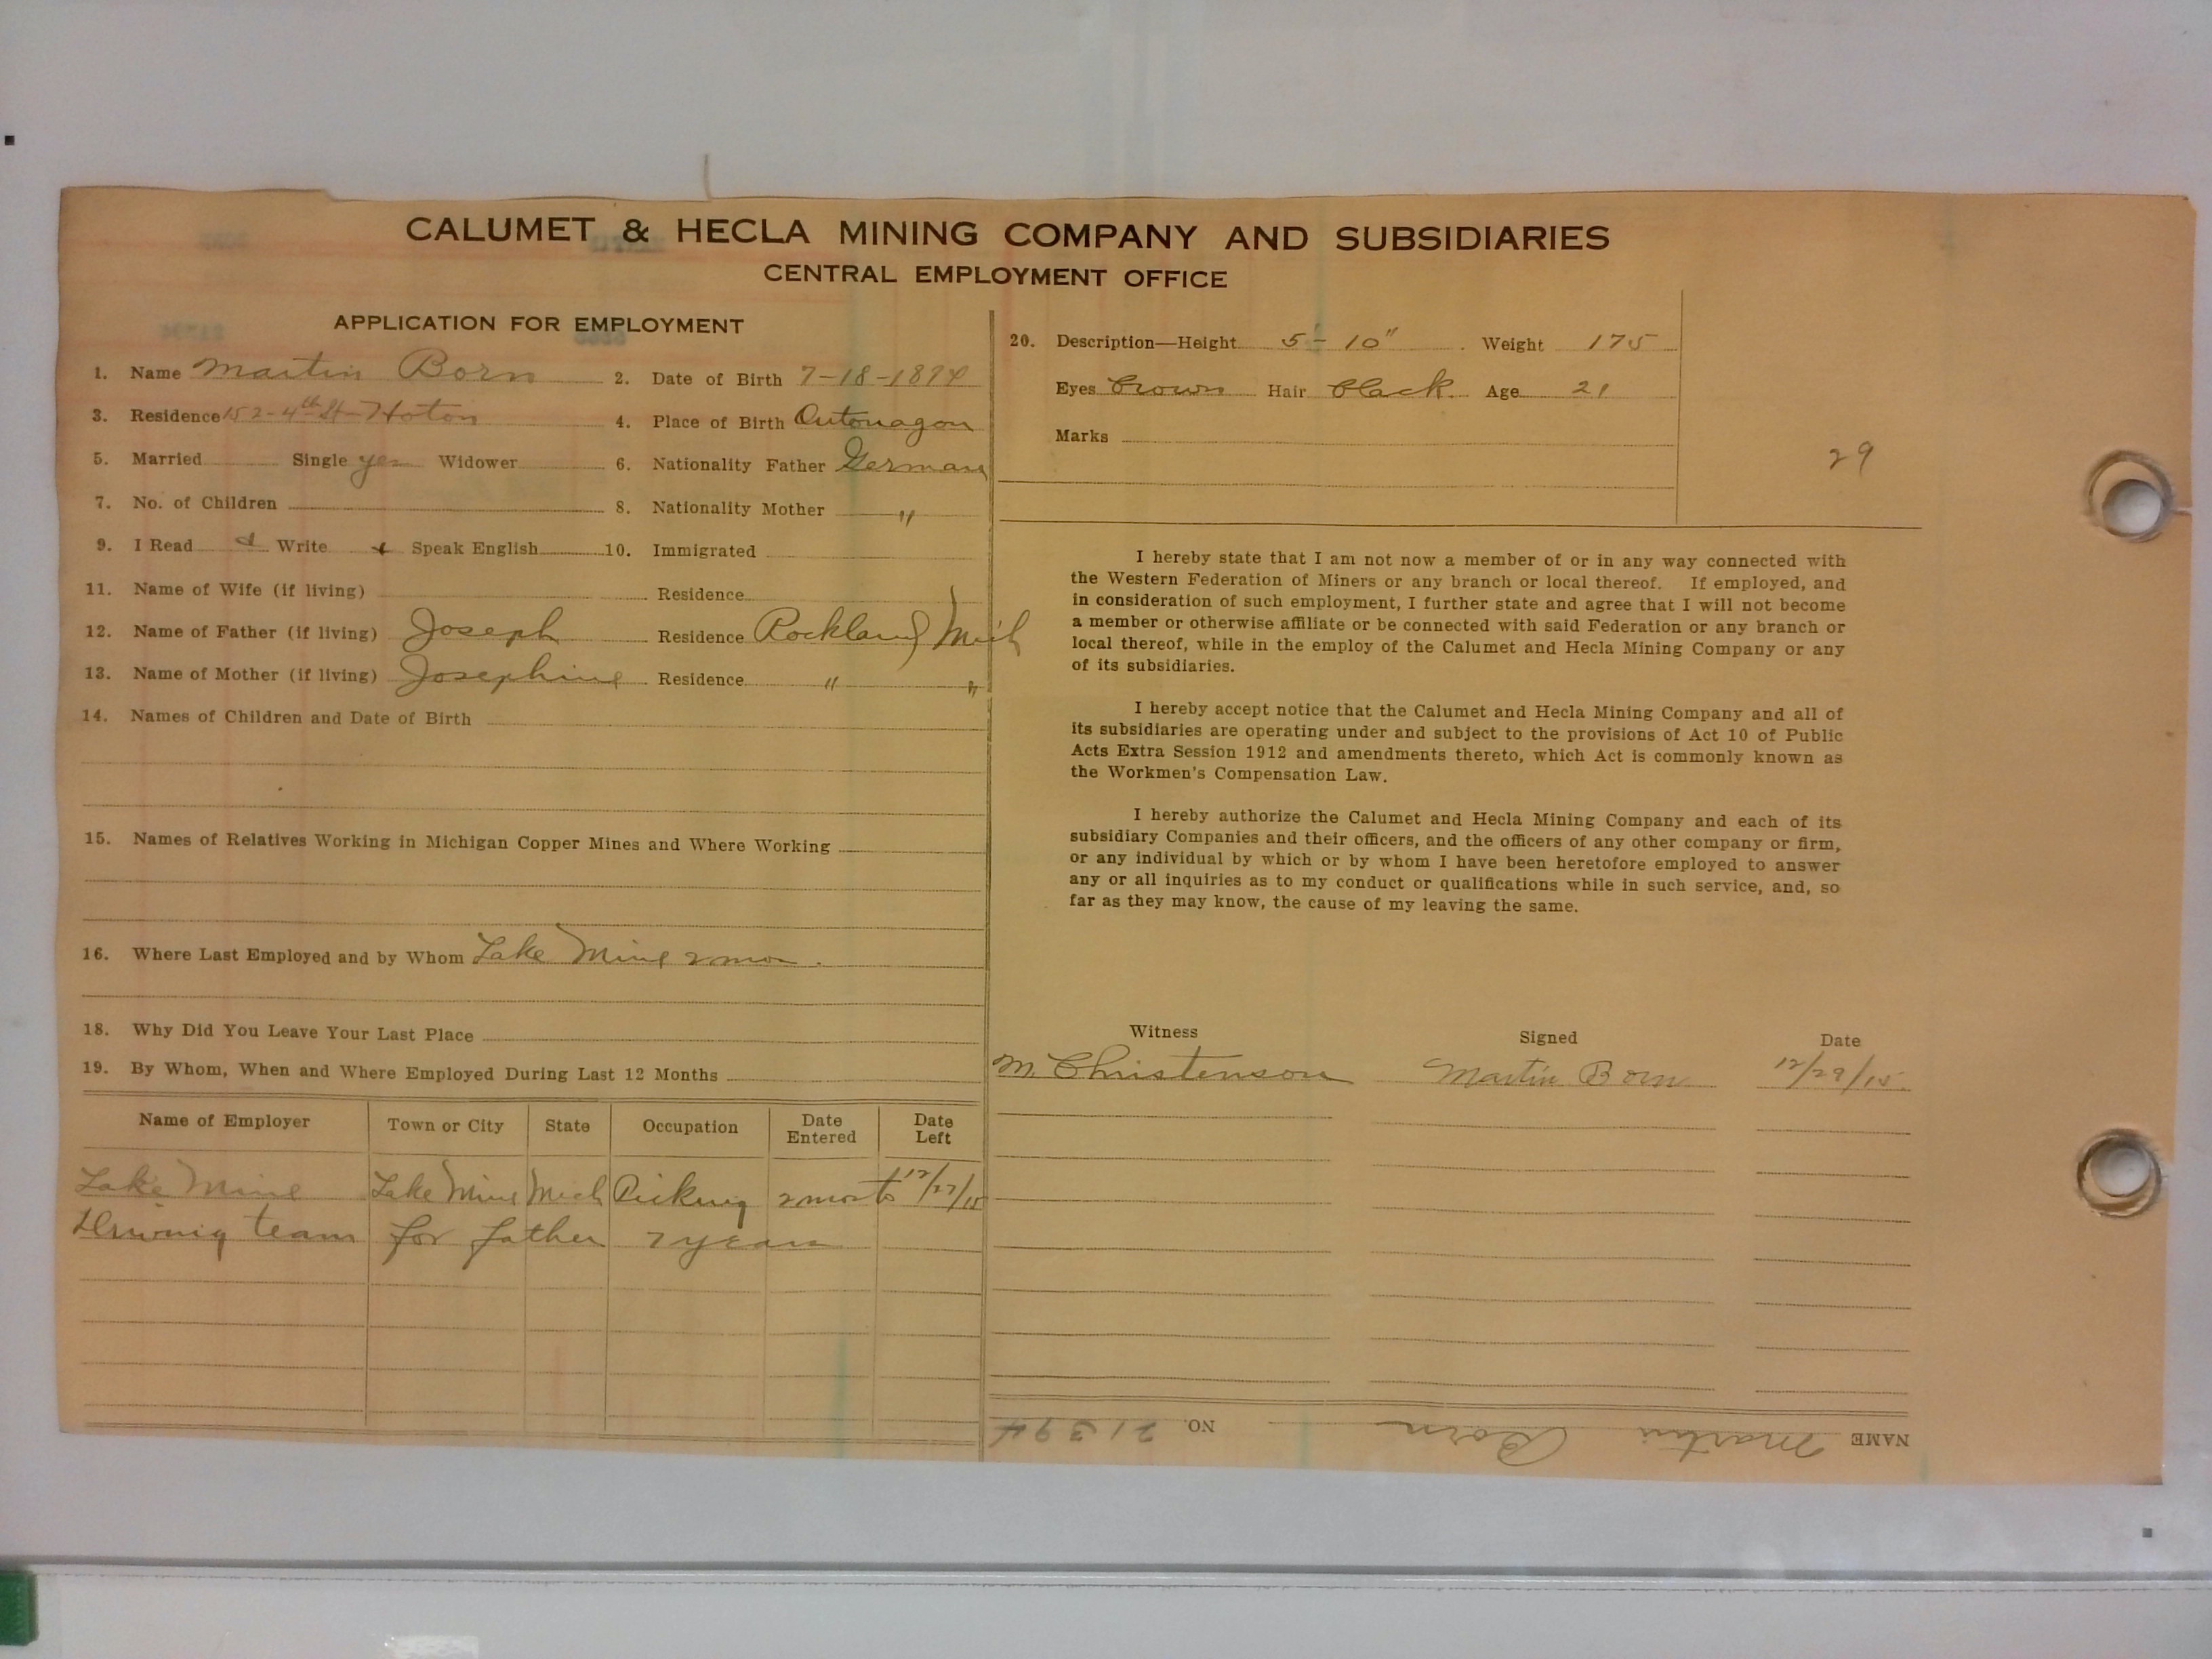 CALUMET & HECLA MINING COMPANY AND SUBSIDIARIES
CENTRAL EMPLOYMENT OFFICE
APPLICATION FOR EMPLOYMENT
1. Name Martin Born 2. Date of Birth 7-18-1894
3. Residence 152-4th St- Hoton 4. Place of Birth Ontonagon
5. Married Single yes Widower 6. Nationality Father German
7. No. of Children 8. Nationality Mother "
9. I Read & Write & Speak English 10. Immigrated
11. Name of Wife (if living) Residence
12. Name of Father (if living) Joseph Residence Rockland Mich
13. Name of Mother (if living) Josephine Residence " "
14. Names of Children and Date of Birth
15. Names of Relatives Working in Michigan Copper Mines and Where Working
16. Where Last Employed and by Whom Lake Mine 2 mon.
18. Why Did You Leave Your Last Place
19. By Whom, When and Where Employed During Last 12 Months
Name of Employer Town or City State Occupation Date Entered Date Left
Lake Mine Lake Mine Mich Picking 2 mos to 12/27/15
Driving team for father 7 years
20. Description—Height 5'- 10" Weight 175
Eyes Brown Hair Black Age 21
Marks
29
I hereby state that I am not now a member of or in any way connected with
the Western Federation of Miners or any branch or local thereof. If employed, and
in consideration of such employment, I further state and agree that I will not become
a member or otherwise affiliate or be connected with said Federation or any branch or
local thereof, while in the employ of the Calumet and Hecla Mining Company or any
of its subsidiaries.
I hereby accept notice that the Calumet and Hecla Mining Company and all of
its subsidiaries are operating under and subject to the provisions of Act 10 of Public
Acts Extra Session 1912 and amendments thereto, which Act is commonly known as
the Workmen's Compensation Law.
I hereby authorize the Calumet and Hecla Mining Company and each of its
subsidiary Companies and their officers, and the officers of any other company or firm,
or any individual by which or by whom I have been heretofore employed to answer
any or all inquiries as to my conduct or qualifications while in such service, and, so
far as they may know, the cause of my leaving the same.
Witness Signed Date
M. Christenson Martin Born 12/29/15.
NAME Martin Born NO. 21394